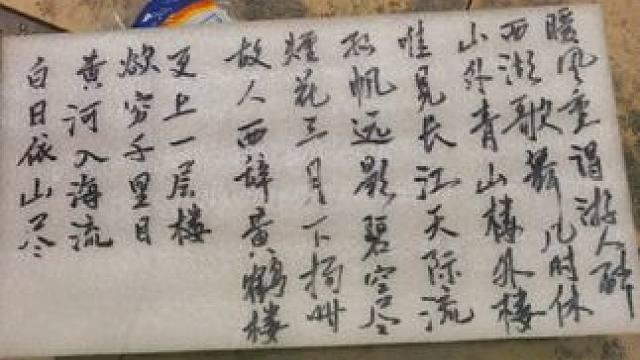 白日依山尽
黄河入海流
欲穷千里目
更上一层楼
故人西辞黄鹤楼
煙花三月下扬州
孤帆远影碧空尽
唯见长江天际流
山外青山楼外楼
西湖歌舞几时休
暖风游人醉